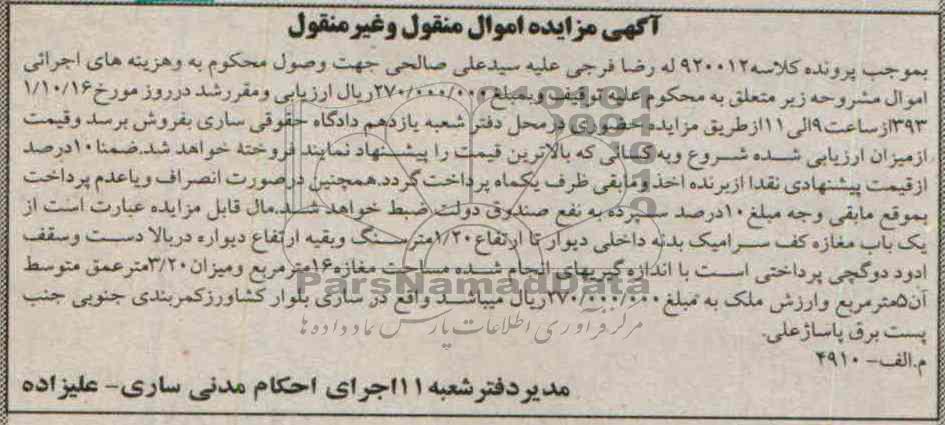 آگهی مزایده اموال منقول وغیرمنقول
بموجب پرونده کلاسه۹۲۰۰۱۲ له رضا فرجی علیه سیدعلی صالحی جهت وصول محکوم به وهزینه های اجرائی
اموال مشروحه زیر متعلق به محکوم علیه توقیف وبمبلغ۲۷۰/۰۰۰/۰۰۰ریال ارزیابی ومقررشد درروز مورخ۱/۱۰/۱۶
۳۹۳ازساعت۹الی۱۱ازطریق مزایده حضوری درمحل دفتر شعبه یازدهم دادگاه حقوقی ساری بفروش برسد وقیمت
ازمیزان ارزیابی شده شروع وبه کسانی که بالاترین قیمت را پیشنهاد نمایند فروخته خواهد شد.ضمنا۱۰درصد
ازقیمت پیشنهادی نقدا ازبرنده اخذ ومابقی ظرف یکماه پرداخت گردد.همچنین درصورت انصراف ویاعدم پرداخت
بموقع مابقی وجه مبلغ ۱۰درصد سپرده به نفع صندوق دولت ضبط خواهد شد.مال قابل مزایده عبارت است از
یک باب مغازه کف سرامیک بدنه داخلی دیوار تا ارتفاع۱/۲۰مترسنگ وبقیه ارتفاع دیواره دربالا دست وسقف
ادود دوگچی پرداختی است با اندازه گیریهای انجام شده مساحت مغازه۱۶مترمربع ومیزان۳/۲۰مترعمق متوسط
آن۵مترمربع وارزش ملک به مبلغ ۲۷۰/۰۰۰/۰۰۰ریال میباشد واقع در ساری بلوار کشاورزکمربندی جنوبی جنب
پست برق پاساژعلی.
م.الف- ۴۹۱۰
مدیردفترشعبه۱۱اجرای احکام مدنی ساری- علیزاده
ParsNamadData
مرکز فرآوری اطلاعات پارس نماد داده ها